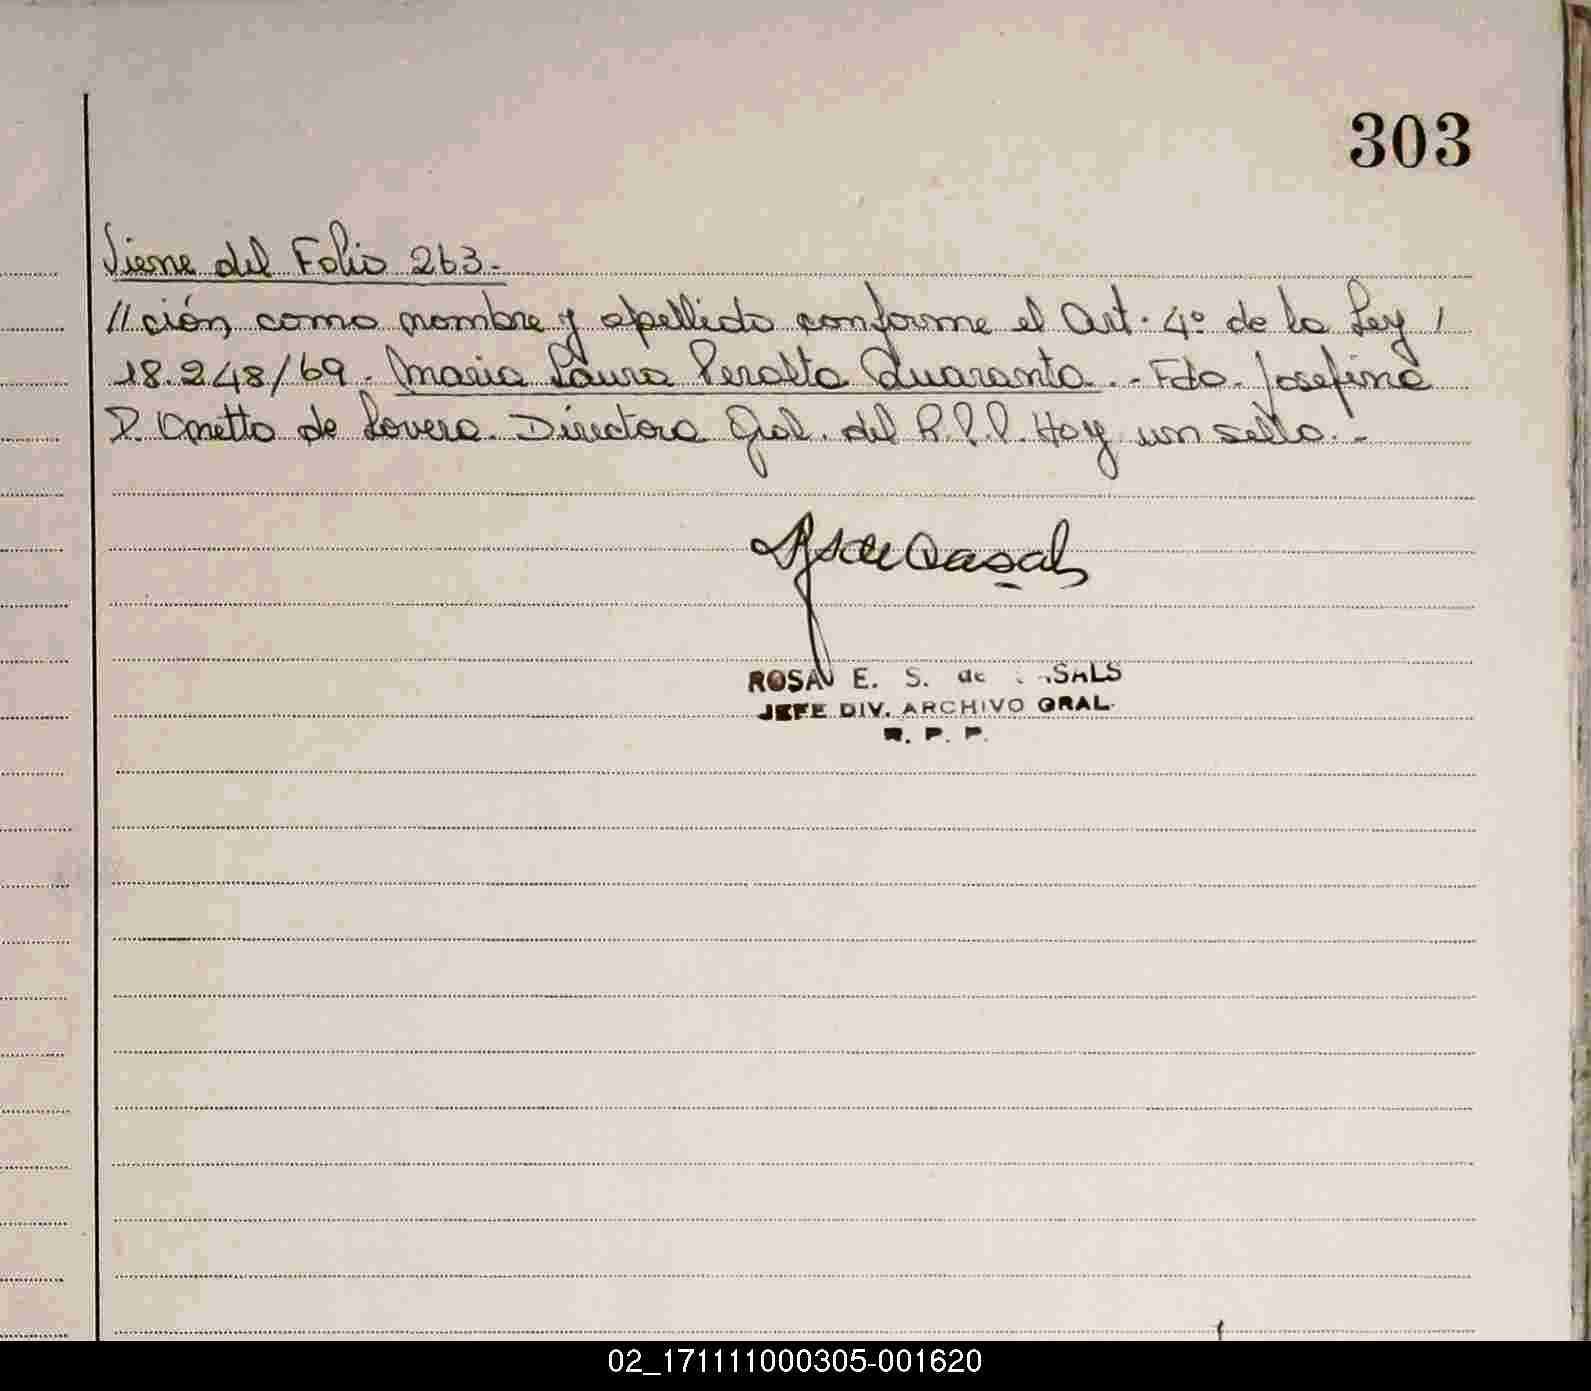 303
Viene del Folio 263.-
//ción, como nombre y apellido conforme el Art. 4º de la Ley /
18.248/69. Maria Laura Peralta Quaranta..- Fdo. Josefina
D. Onetto de Lovera. Directora Gral. del R.P.P. Hay un sello.-
ROSA E. S. de SALS
JEFE DIV. ARCHIVO GRAL.
R. P. P.
02_171111000305-001620